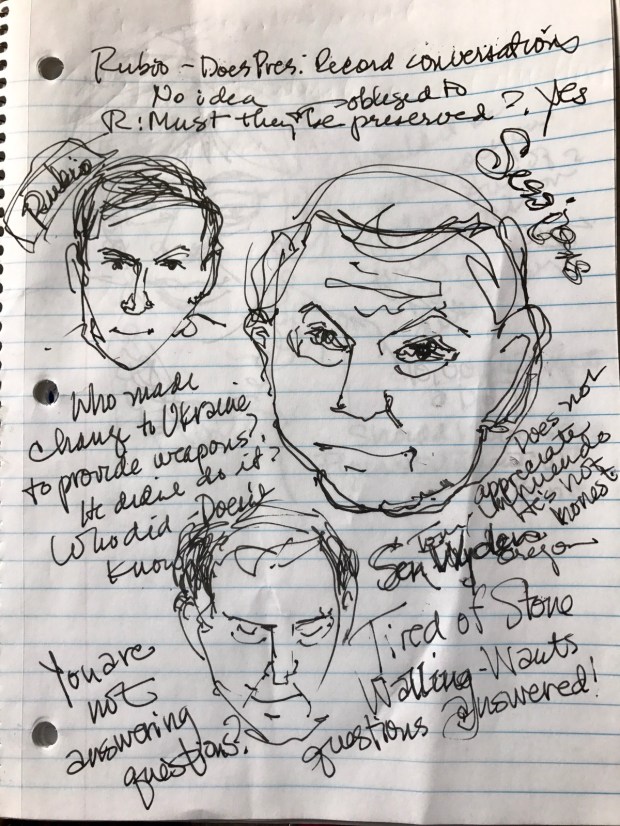 Rubio - Does Pres. Record conversations
No idea
→ obliged to
R: Must they be preserved? Yes
Rubio
Sessions
Who made
change to Ukraine
to provide weapons?
He didnt do it?
Who did - Doesnt
know
Does not
appreciate
innuendo
He's not
honest
Sen Wyden
Oregon
Tired of Stone
Walling - Wants
questions answered!
You are
not
answering
questions?